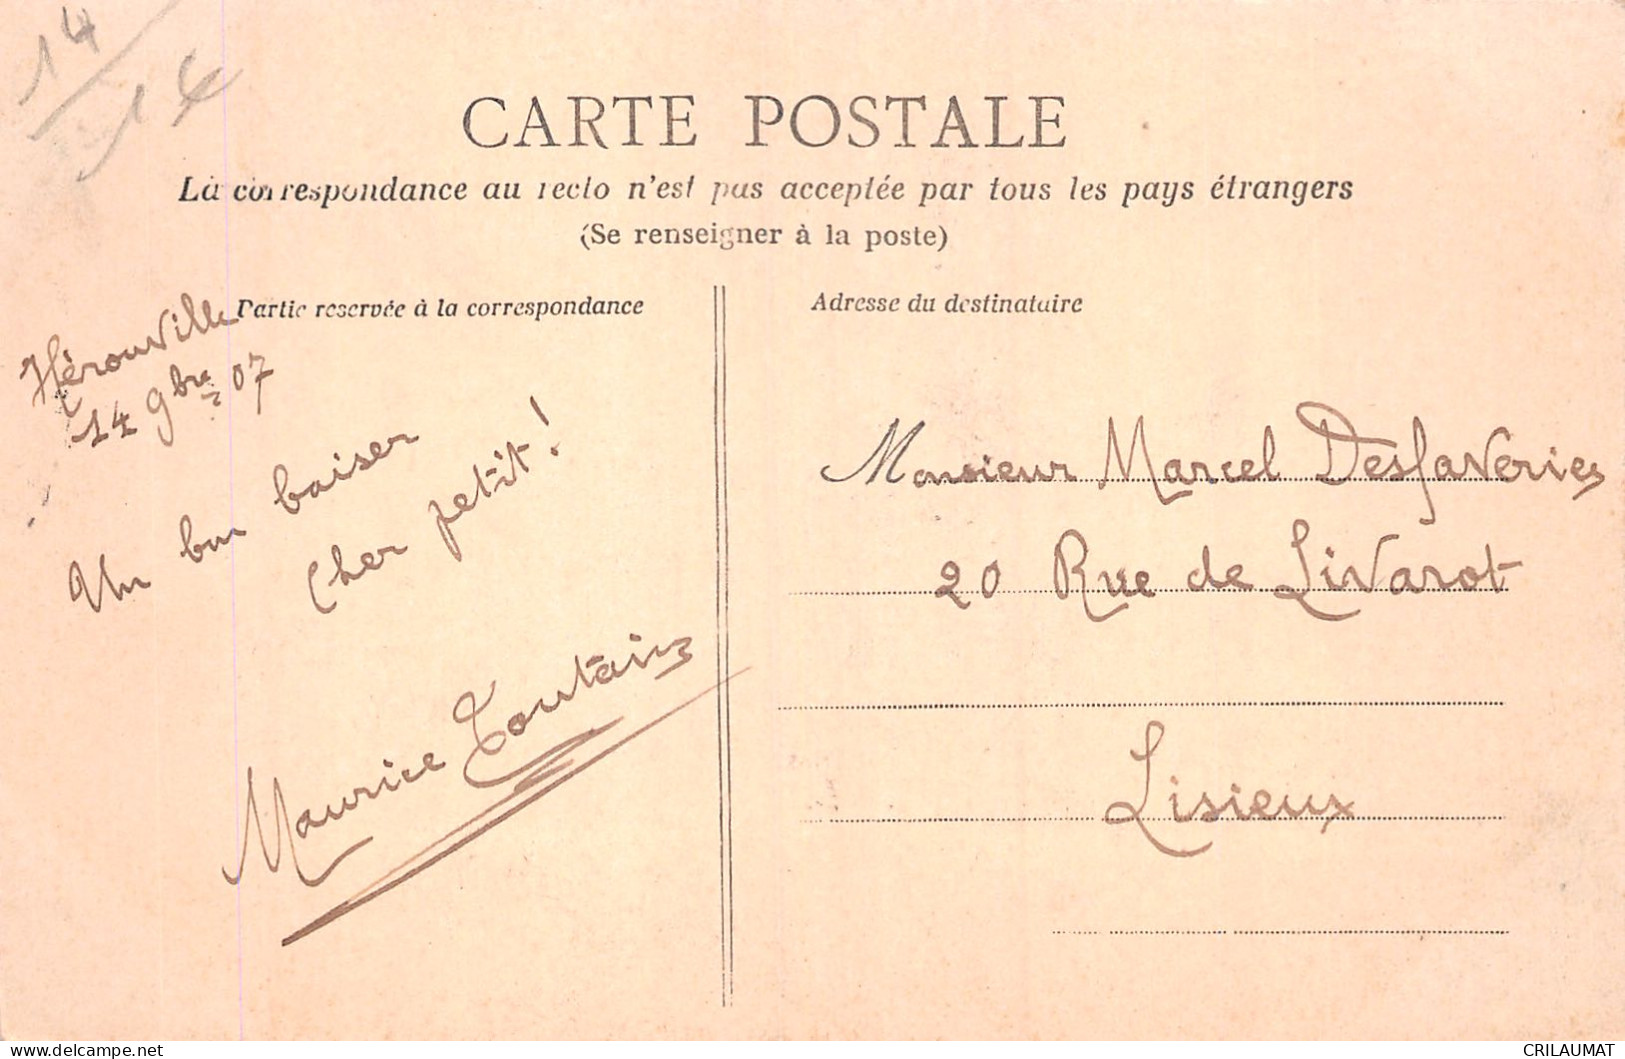 14
14
CARTE POSTALE
La correspondance au recto n'est pas acceptée par tous les pays étrangers
(Se renseigner à la poste)
Partie reservée à la correspondance
Adresse du destinataire
Hérouville
14 9bre 07
Un bon baiser
Cher petit!
Maurice Toutain
Monsieur Marcel Desfaveries
20 Rue de Livarot
Lisieux
CRILAUMAT